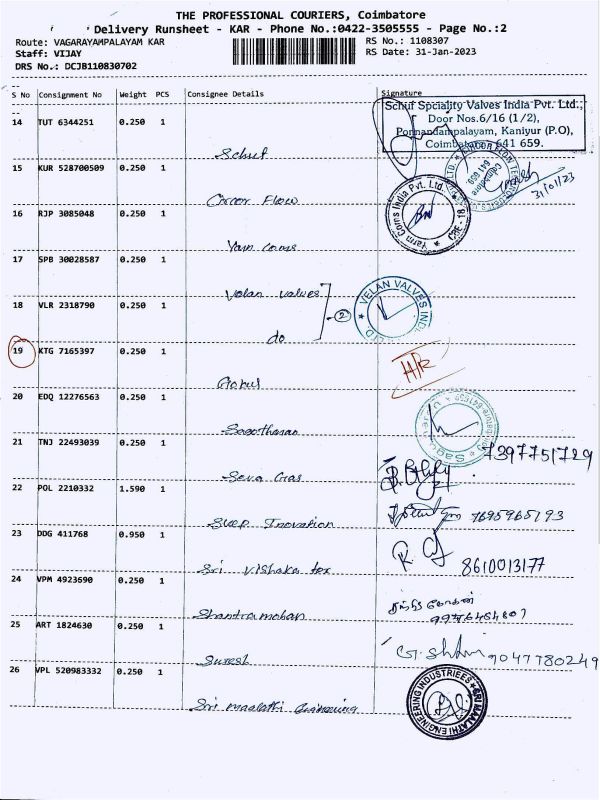 THE PROFESSIONAL COURIERS, Coimbatore
Delivery Runsheet - KAR - Phone No.:0422-3505555 - Page No.:2
Route: VAGARAYAMPALAYAM KAR
RS No.: 1108307
Staff: VIJAY
RS Date: 31-Jan-2023
DRS No.: DCJB110830702
S No Consignment No Weight PCS Consignee Details Signature
14 TUT 6344251 0.250 1
Schuf
Schuf Spciality Valves India Pvt. Ltd.,
Door Nos.6/16 (1/2),
Ponnandampalayam, Kaniyur (P.O),
Coimbatore 641 659.
15 KUR 528700509 0.250 1
Circor Flow
31/01/23
16 RJP 3085048 0.250 1
Yarn coms
Yarn Coms India Pvt. Ltd. * CBE - 18 *
17 SPB 30028587 0.250 1
Velan valves
18 VLR 2318790 0.250 1
do
2
VELAN VALVES IND
19 KTG 7165397 0.250 1
Gokul
20 EDQ 12276563 0.250 1
21 TNJ 22493039 0.250 1
Seva Gas
7397751729
22 POL 2210332 1.590 1
Inovation
7695965193
23 DDG 411768 0.950 1
Sri Vishaka tex
8610013177
24 VPM 4923690 0.250 1
Shantramohan
25 ART 1824630 0.250 1
Suresh
9047780249
26 VPL 520983332 0.250 1
Sri maalathi Engineering
SRI MAALATHI ENGINEERING INDUSTRIES